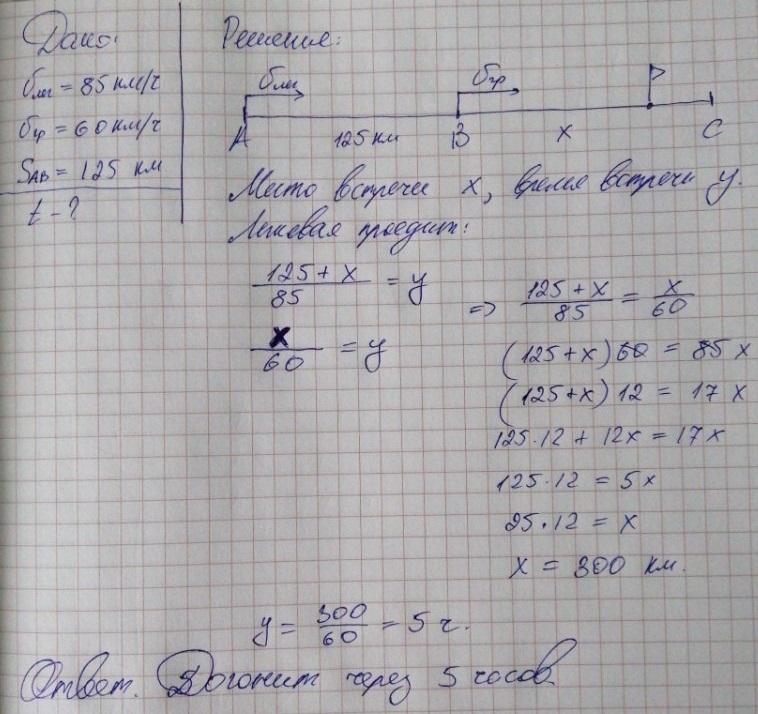 Дано:
υлег = 85 км/ч
υгр = 60 км/ч
SAB = 125 км
t - ?
Решение:
υлег υгр
A 125 км B x C
Место встречи x, время встречи y.
Легковая проедит:
(125 + x)/85 = y
x/60 = y
=> (125 + x)/85 = x/60
(125+x) 60 = 85 x
(125+x) 12 = 17 x
125·12 + 12x = 17x
125·12 = 5x
25·12 = x
x = 300 км.
y = 300/60 = 5 ч.
Ответ. Догонит через 5 часов.